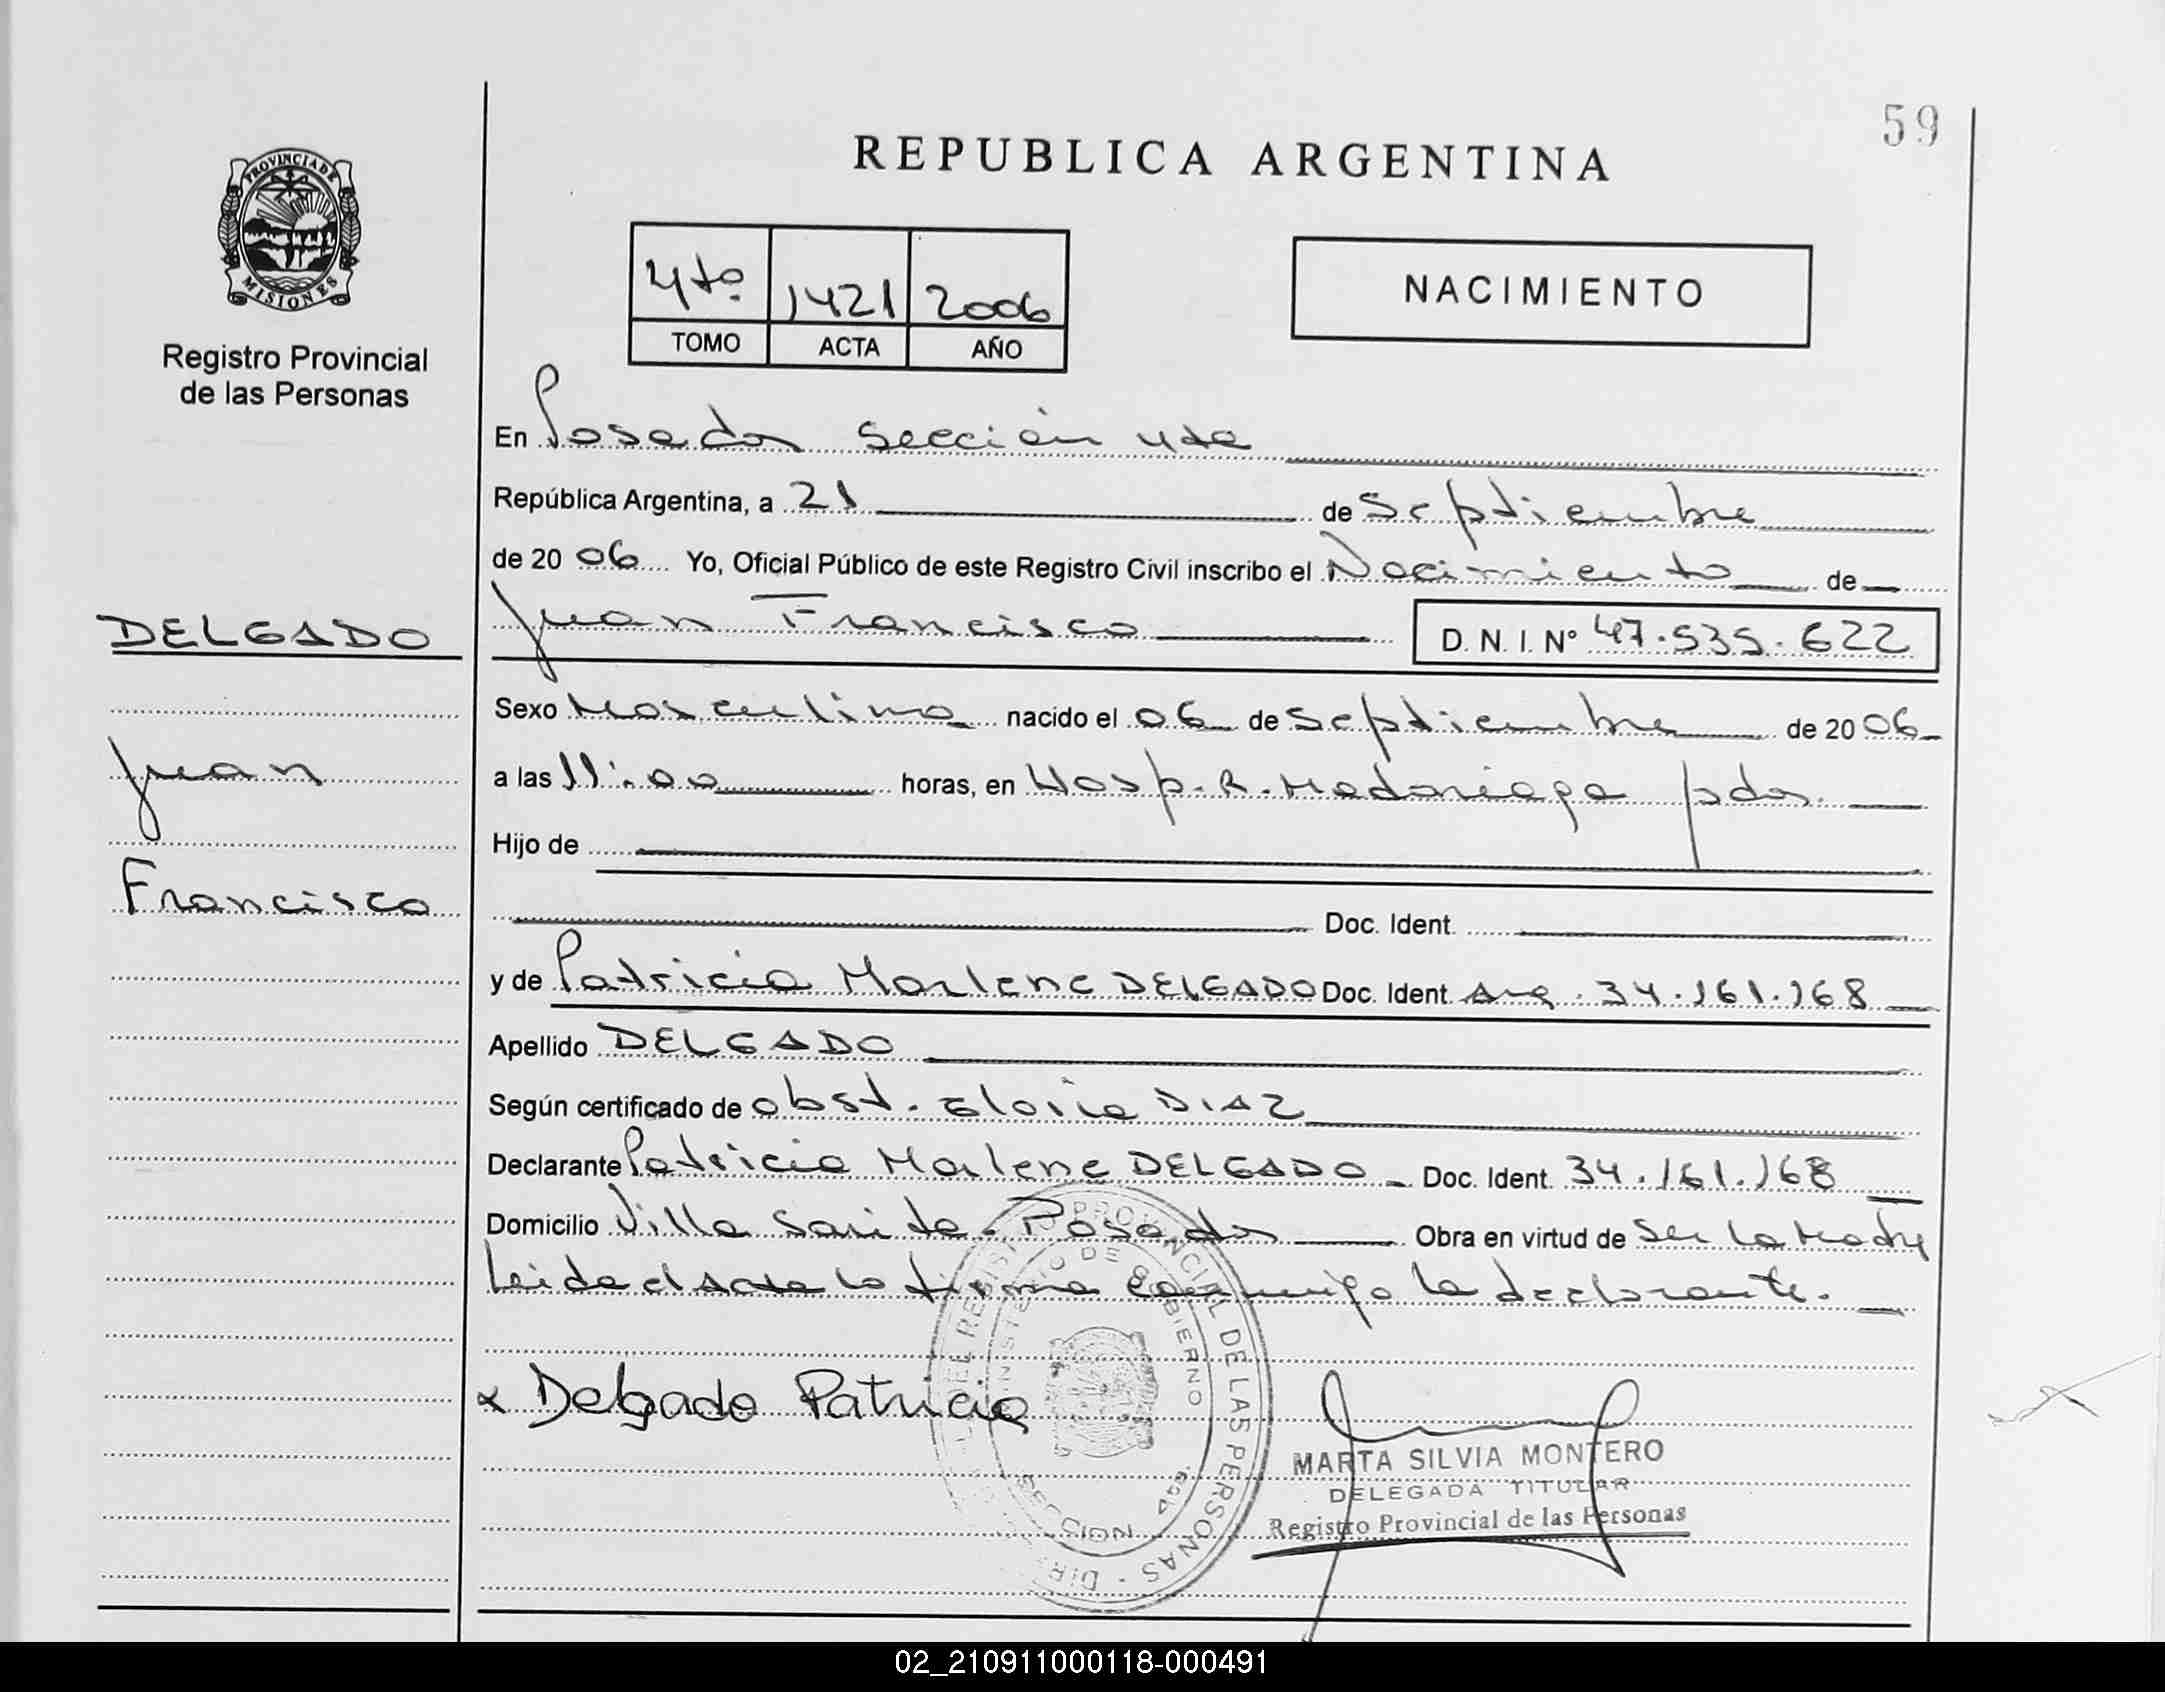 59
REPUBLICA ARGENTINA
PROVINCIA DE
MISIONES
Registro Provincial
de las Personas
4to 1421 2006
TOMO ACTA AÑO
NACIMIENTO
En Posadas Sección 4ta
República Argentina, a 21 de Septiembre
de 2006 Yo, Oficial Público de este Registro Civil inscribo el Nacimiento de
DELGADO
Juan Francisco D. N. I. N° 47.535.622
Sexo Masculino nacido el 06 de Septiembre de 2006
Juan
a las 11:00 horas, en Hosp. R. Madariaga pdas.
Hijo de
Francisco
Doc. Ident.
y de Patricia Marlene DELGADO Doc. Ident. Arg. 34.161.168
Apellido DELGADO
Según certificado de obst. Gloria DIAZ
Declarante Patricia Marlene DELGADO Doc. Ident. 34.161.168
Domicilio Villa Sarita. Posadas Obra en virtud de Ser la Madre
Leida el Acta la firma conmigo la declarante.
x Delgado Patricia
MARTA SILVIA MONTERO
DELEGADA TITULAR
Registro Provincial de las Personas
PROVINCIAL DE LAS PERSONAS
MINISTERIO DE GOBIERNO
02_210911000118-000491